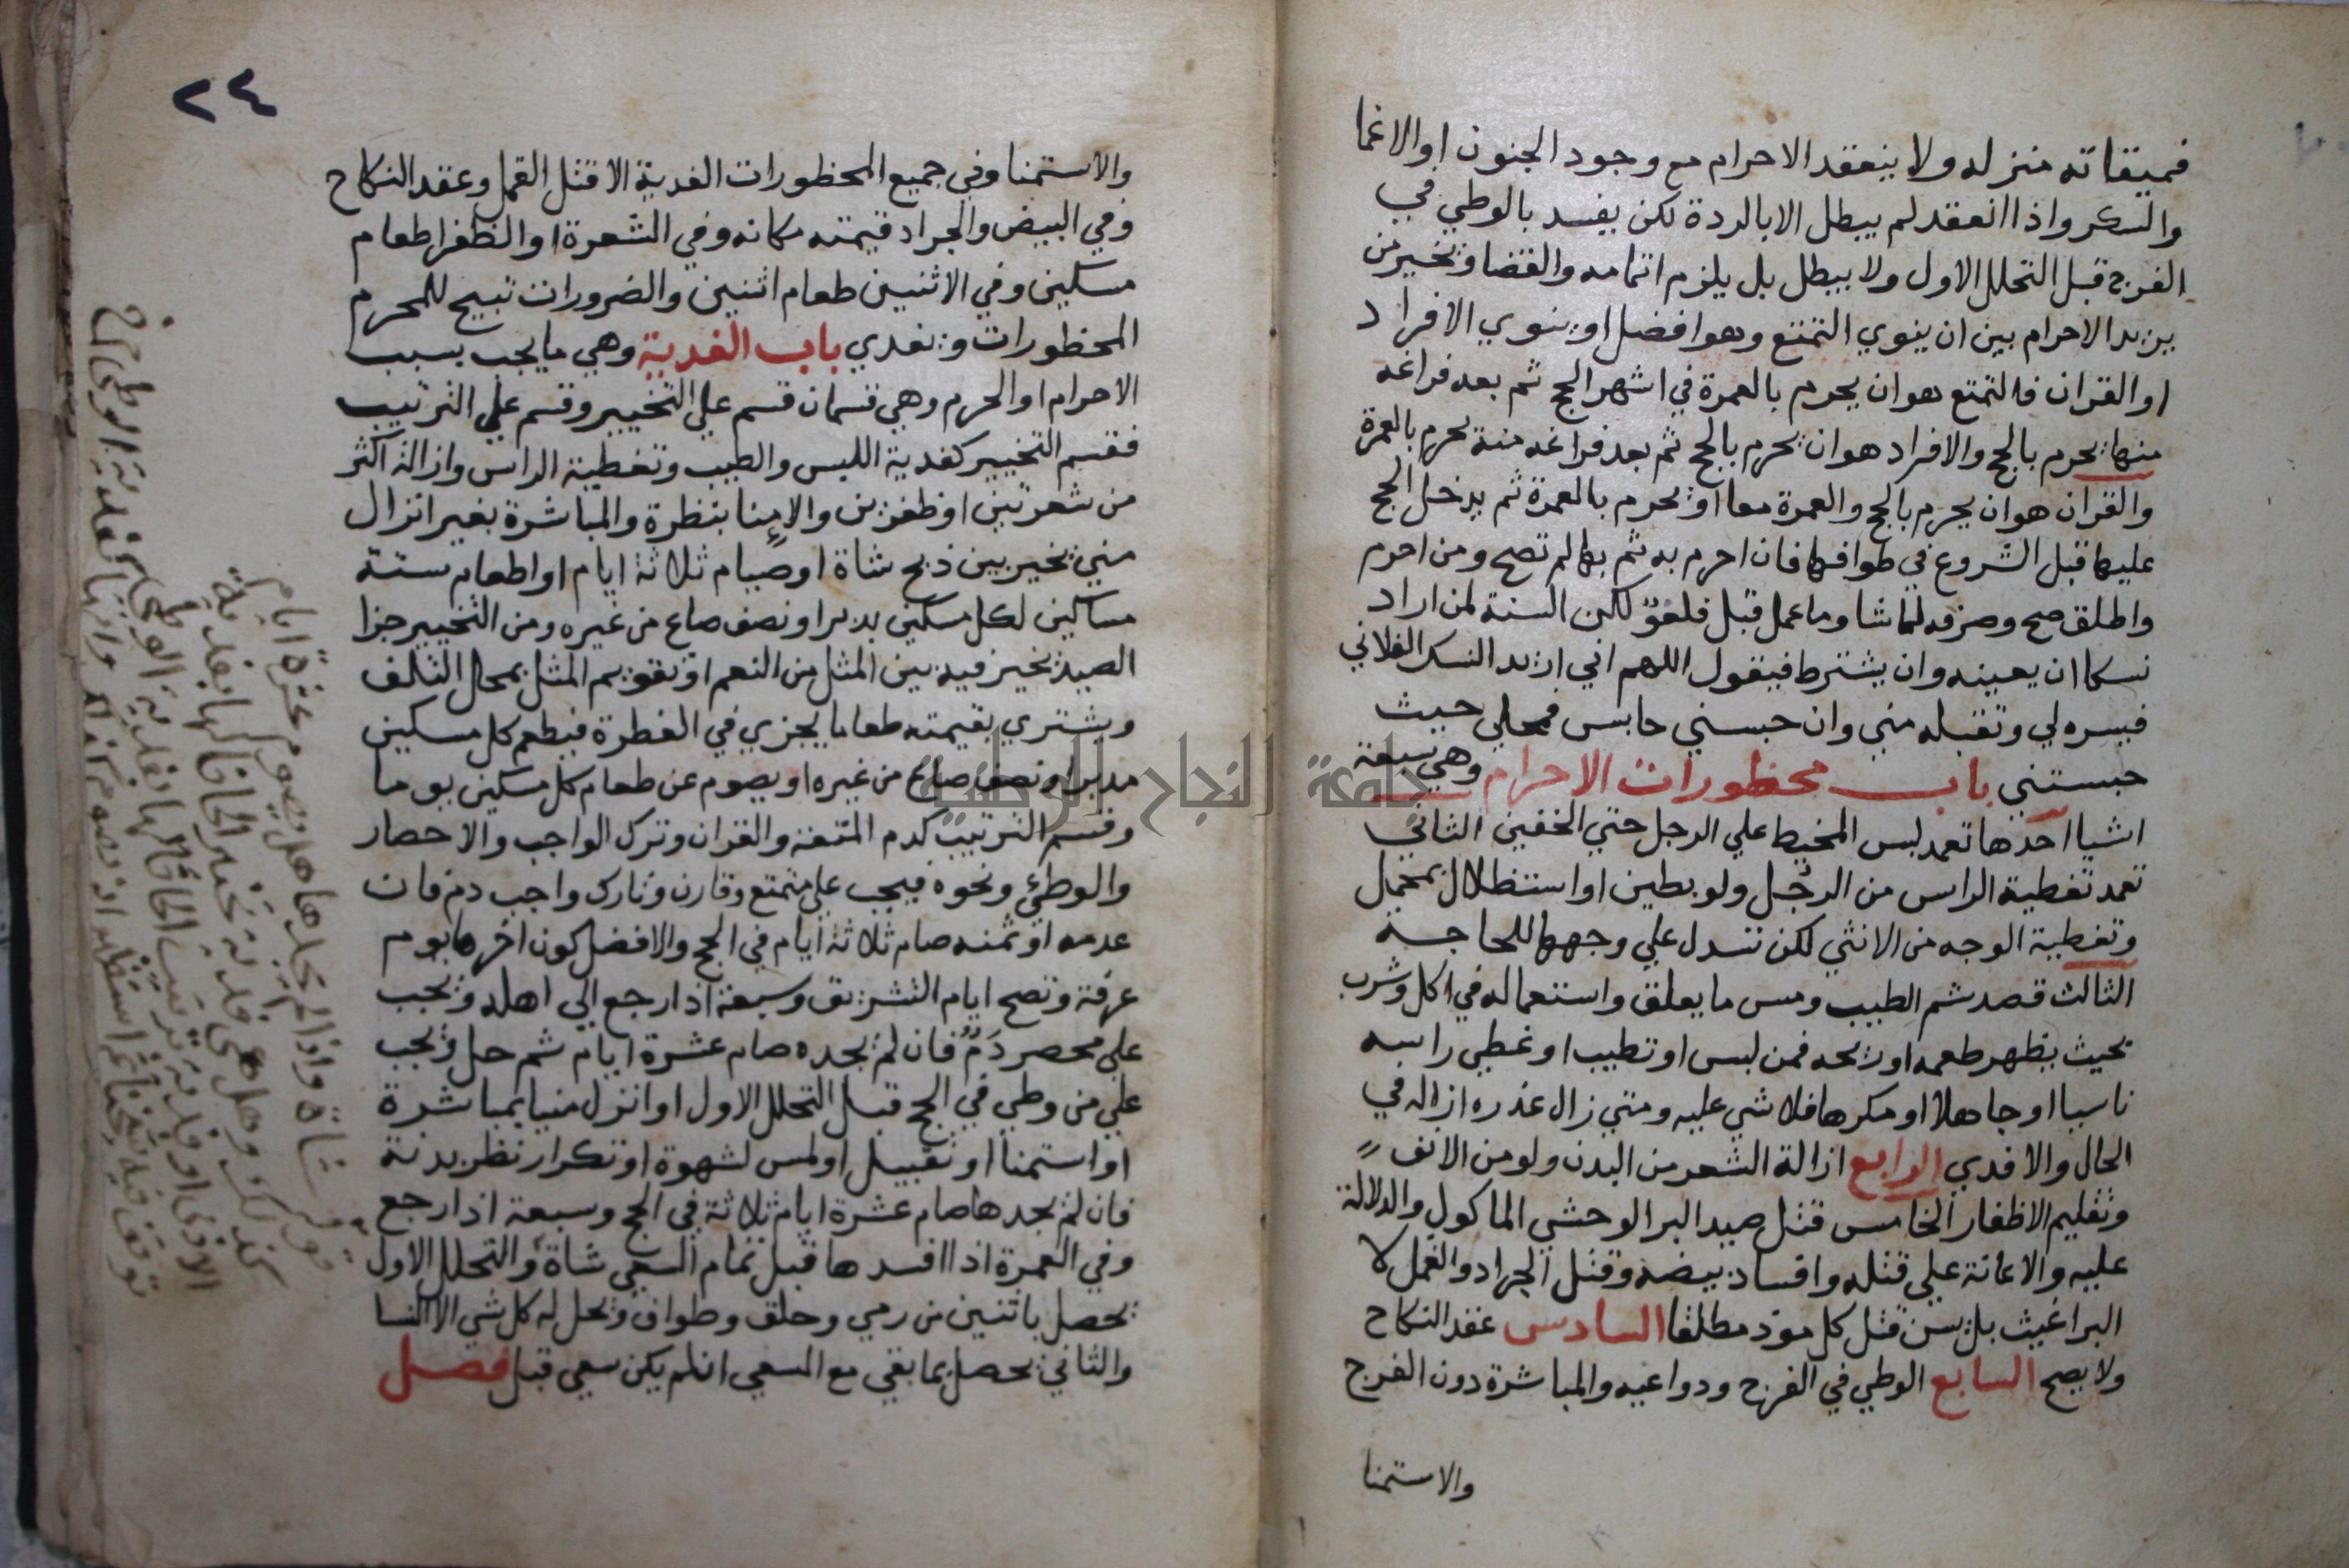 فميقاته منزله ولا ينعقد الاحرام مع وجود الجنون او الاغما
والسكر واذا انعقد لم يبطل الا بالردة لكن يفسد بالوطي في
الفرج قبل التحلل الاول ولا يبطل بل يلزم اتمامه والقضا وتخير من
يريد الاحرام بين ان ينوي التمتع وهو افضل او ينوي الافراد
او القران فالتمتع هو ان يحرم بالعمرة في اشهر الحج ثم بعد فراغه
منها يحرم بالحج والافراد هو ان يحرم بالحج ثم بعد فراغه منه يحرم بالعمرة
والقران هو ان يحرم بالحج والعمرة معا او يحرم بالعمرة ثم يدخل الحج
عليها قبل الشروع في طوافها فان احرم به ثم بها لم تصح ومن احرم
واطلق صح وصرفه لما شا وما عمل قبل فلغو لكن السنة لمن اراد
نسكا ان يعينه وان يشترط فيقول اللهم اني اريد النسك الفلاني
فيسره لي وتقبله مني وان حبسني حابس فمحلي حيث
حبستني باب محظورات الاحرام وهي سبعة
اشيا احدها تعمد لبس المخيط علي الرجل حتي الخفين الثاني
تعمد تغطية الراس من الرجل ولو بطين او استظلال بمحمل
وتغطية الوجه من الانثي لكن تسدل علي وجهها للحاجة
الثالث قصد شم الطيب ومس ما يعلق واستعماله في اكل وشرب
بحيث يظهر طعمه او ريحه فمن لبس او تطيب او غطي راسه
ناسيا او جاهلا او مكرها فلا شي عليه ومتي زال عذره ازاله في
الحال والا فدي الرابع ازالة الشعر من البدن ولو من الانف
وتقليم الاظفار الخامس قتل صيد البر الوحشي الماكول والدلالة
عليه والاعانة علي قتله وافساد بيضه وقتل الجراد والقمل لا
البراغيث بل يسن قتل كل موذ مطلقا السادس عقد النكاح
ولا يصح السابع الوطي في الفرج ودواعيه والمباشرة دون الفرج
والاستمنا
٢٤
والاستمنا وفي جميع المحظورات الفدية الا قتل القمل وعقد النكاح
وفي البيض والجراد قيمته مكانه وفي الشعرة او الظفر اطعام
مسكين وفي الاثنين طعام اثنين والضرورات تبيح للمحرم
المحظورات ويفدي باب الفدية وهي ما يجب بسبب
الاحرام او الحرم وهي قسمان قسم علي التخيير وقسم علي الترتيب
فقسم التخيير كفدية اللبس والطيب وتغطية الراس وازالة اكثر
من شعرتين او ظفرين والامنا بنظرة والمباشرة بغير انزال
مني يخير بين ذبح شاة او صيام ثلاثة ايام او اطعام ستة
مساكين لكل مسكين مد بر او نصف صاع من غيره ومن التخيير جزا
الصيد يخير فيه بين المثل من النعم او تقويم المثل بمحل التلف
ويشتري بقيمته طعاما يجزي في الفطرة فيطعم كل مسكين
مد بر او نصف صاع من غيره او يصوم عن طعام كل مسكين يوما
وقسم الترتيب كدم المتعة والقران وترك الواجب والاحصار
والوطئ ونحوه فيجب علي متمتع وقارن وتارك واجب دم فان
عدمه او ثمنه صام ثلاثة ايام في الحج والافضل كون اخرها يوم
عرفة وتصح ايام التشريق وسبعة اذا رجع الي اهله ويجب
علي محصر دم فان لم يجده صام عشرة ايام ثم حل ويجب
علي من وطي في الحج قبل التحلل الاول او انزل منيا بمباشرة
او استمنا او تقبيل او لمس لشهوة او تكرار نظر بدنة
فان لم يجدها صام عشرة ايام ثلاثة في الحج وسبعة اذا رجع
وفي العمرة اذا افسدها قبل تمام السعي شاة والتحلل الاول
يحصل باثنين من رمي وحلق وطواف ويحل له كل شي الا النسا
والثاني يحصل بما بقي مع السعي ان لم يكن سعي قبل فصل
شاة واذا لم يجدها هل يصوم عشرة ايام
جامعة النجاح الوطنية